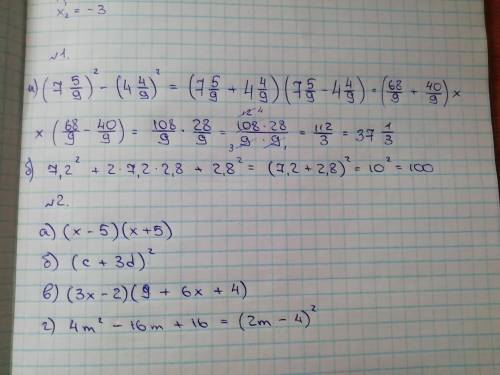 x₂ = -3
№1.
а) (7 5/9)² - (4 4/9)² = (7 5/9 + 4 4/9)(7 5/9 - 4 4/9) = (68/9 + 40/9) ×
× (68/9 - 40/9) = 108/9 · 28/9 = 108 · 28/9 · 9 = 112/3 = 37 1/3
б) 7,2² + 2 · 7,2 · 2,8 + 2,8² = (7,2 + 2,8)² = 10² = 100
№2.
а) (x - 5)(x + 5)
б) (c + 3d)²
в) (3x - 2)(9 + 6x + 4)
г) 4m² - 16m + 16 = (2m - 4)²